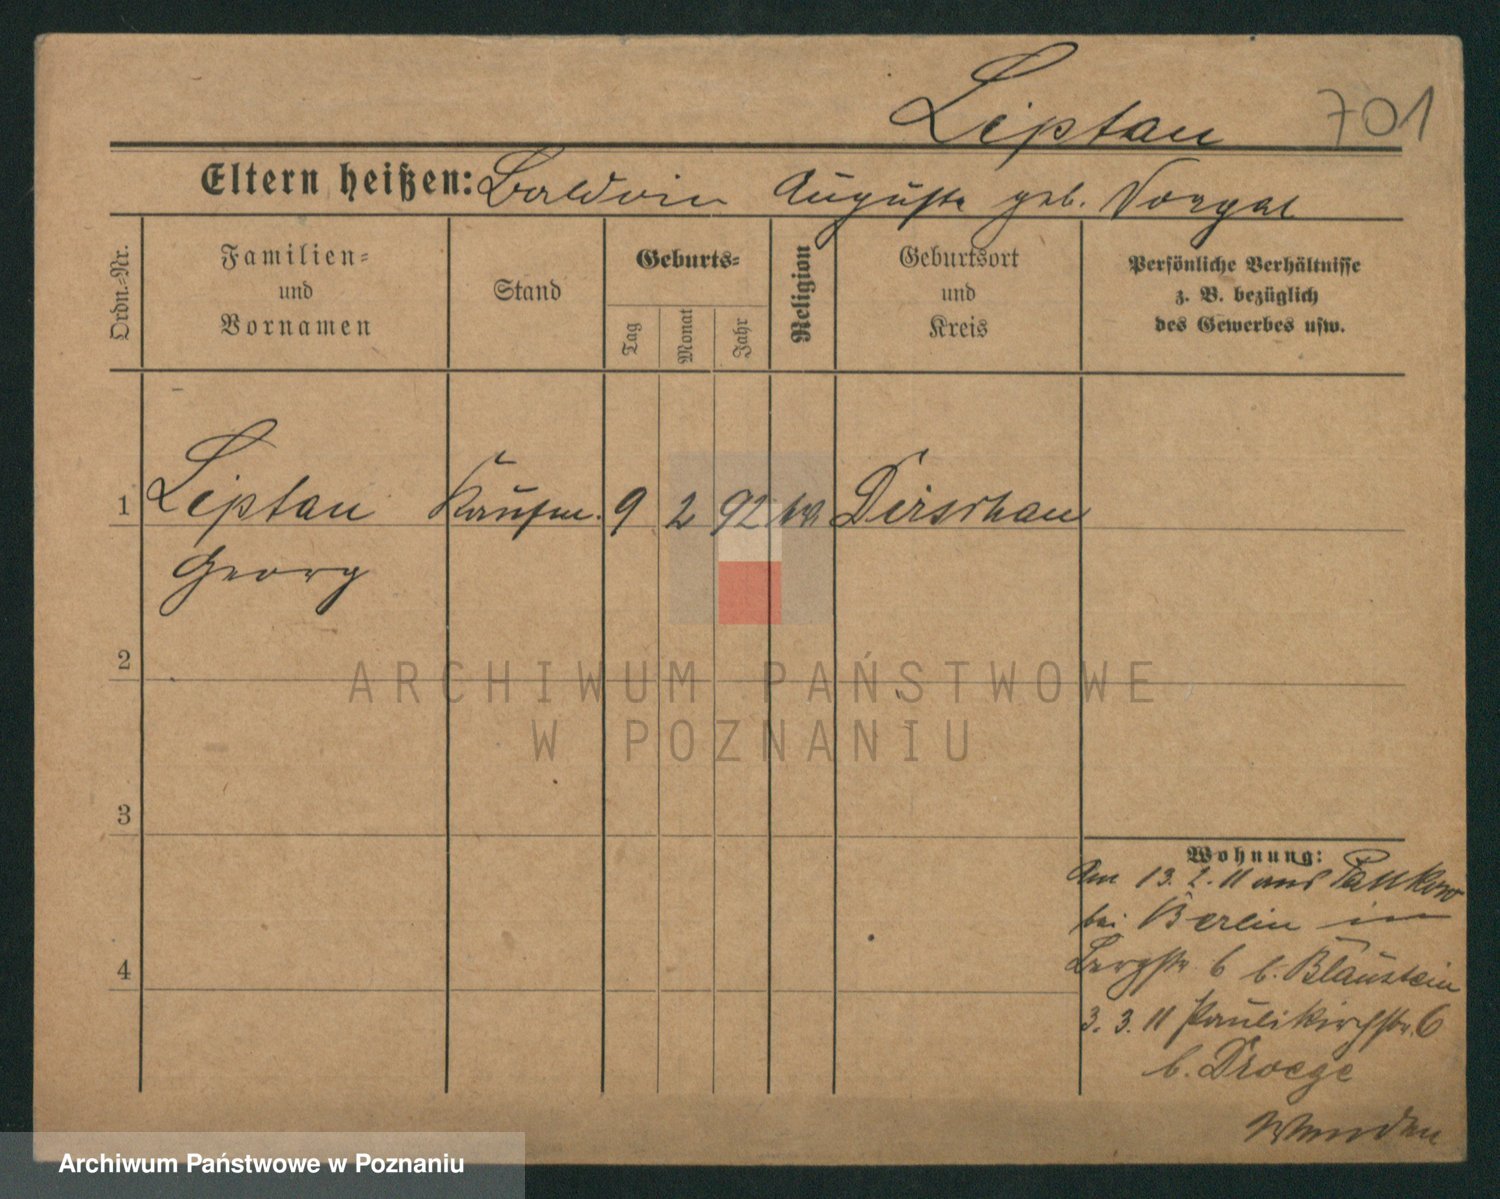 Liptau 701
Eltern heißen: Baldwin Auguste geb. Vorgal
Ordn.-Nr.
Familien-
und
Vornamen
Stand
Geburts-
Tag
Monat
Jahr
Religion
Geburtsort
und
Kreis
Persönliche Verhältnisse
z. B. bezüglich
des Gewerbes usw.
1 Liptau Kaufm. 9 2 92 Dirschau
Georg
2
3
4
Wohnung:
Am 13. 2. 11 aus Pankow
bei Berlin in
Bergstr. 6 b. Blaustein
3. 3. 11 Paulikirchstr. 6
b. Droege
Wenden
ARCHIWUM PAŃSTWOWE
W POZNANIU
Archiwum Państwowe w Poznaniu